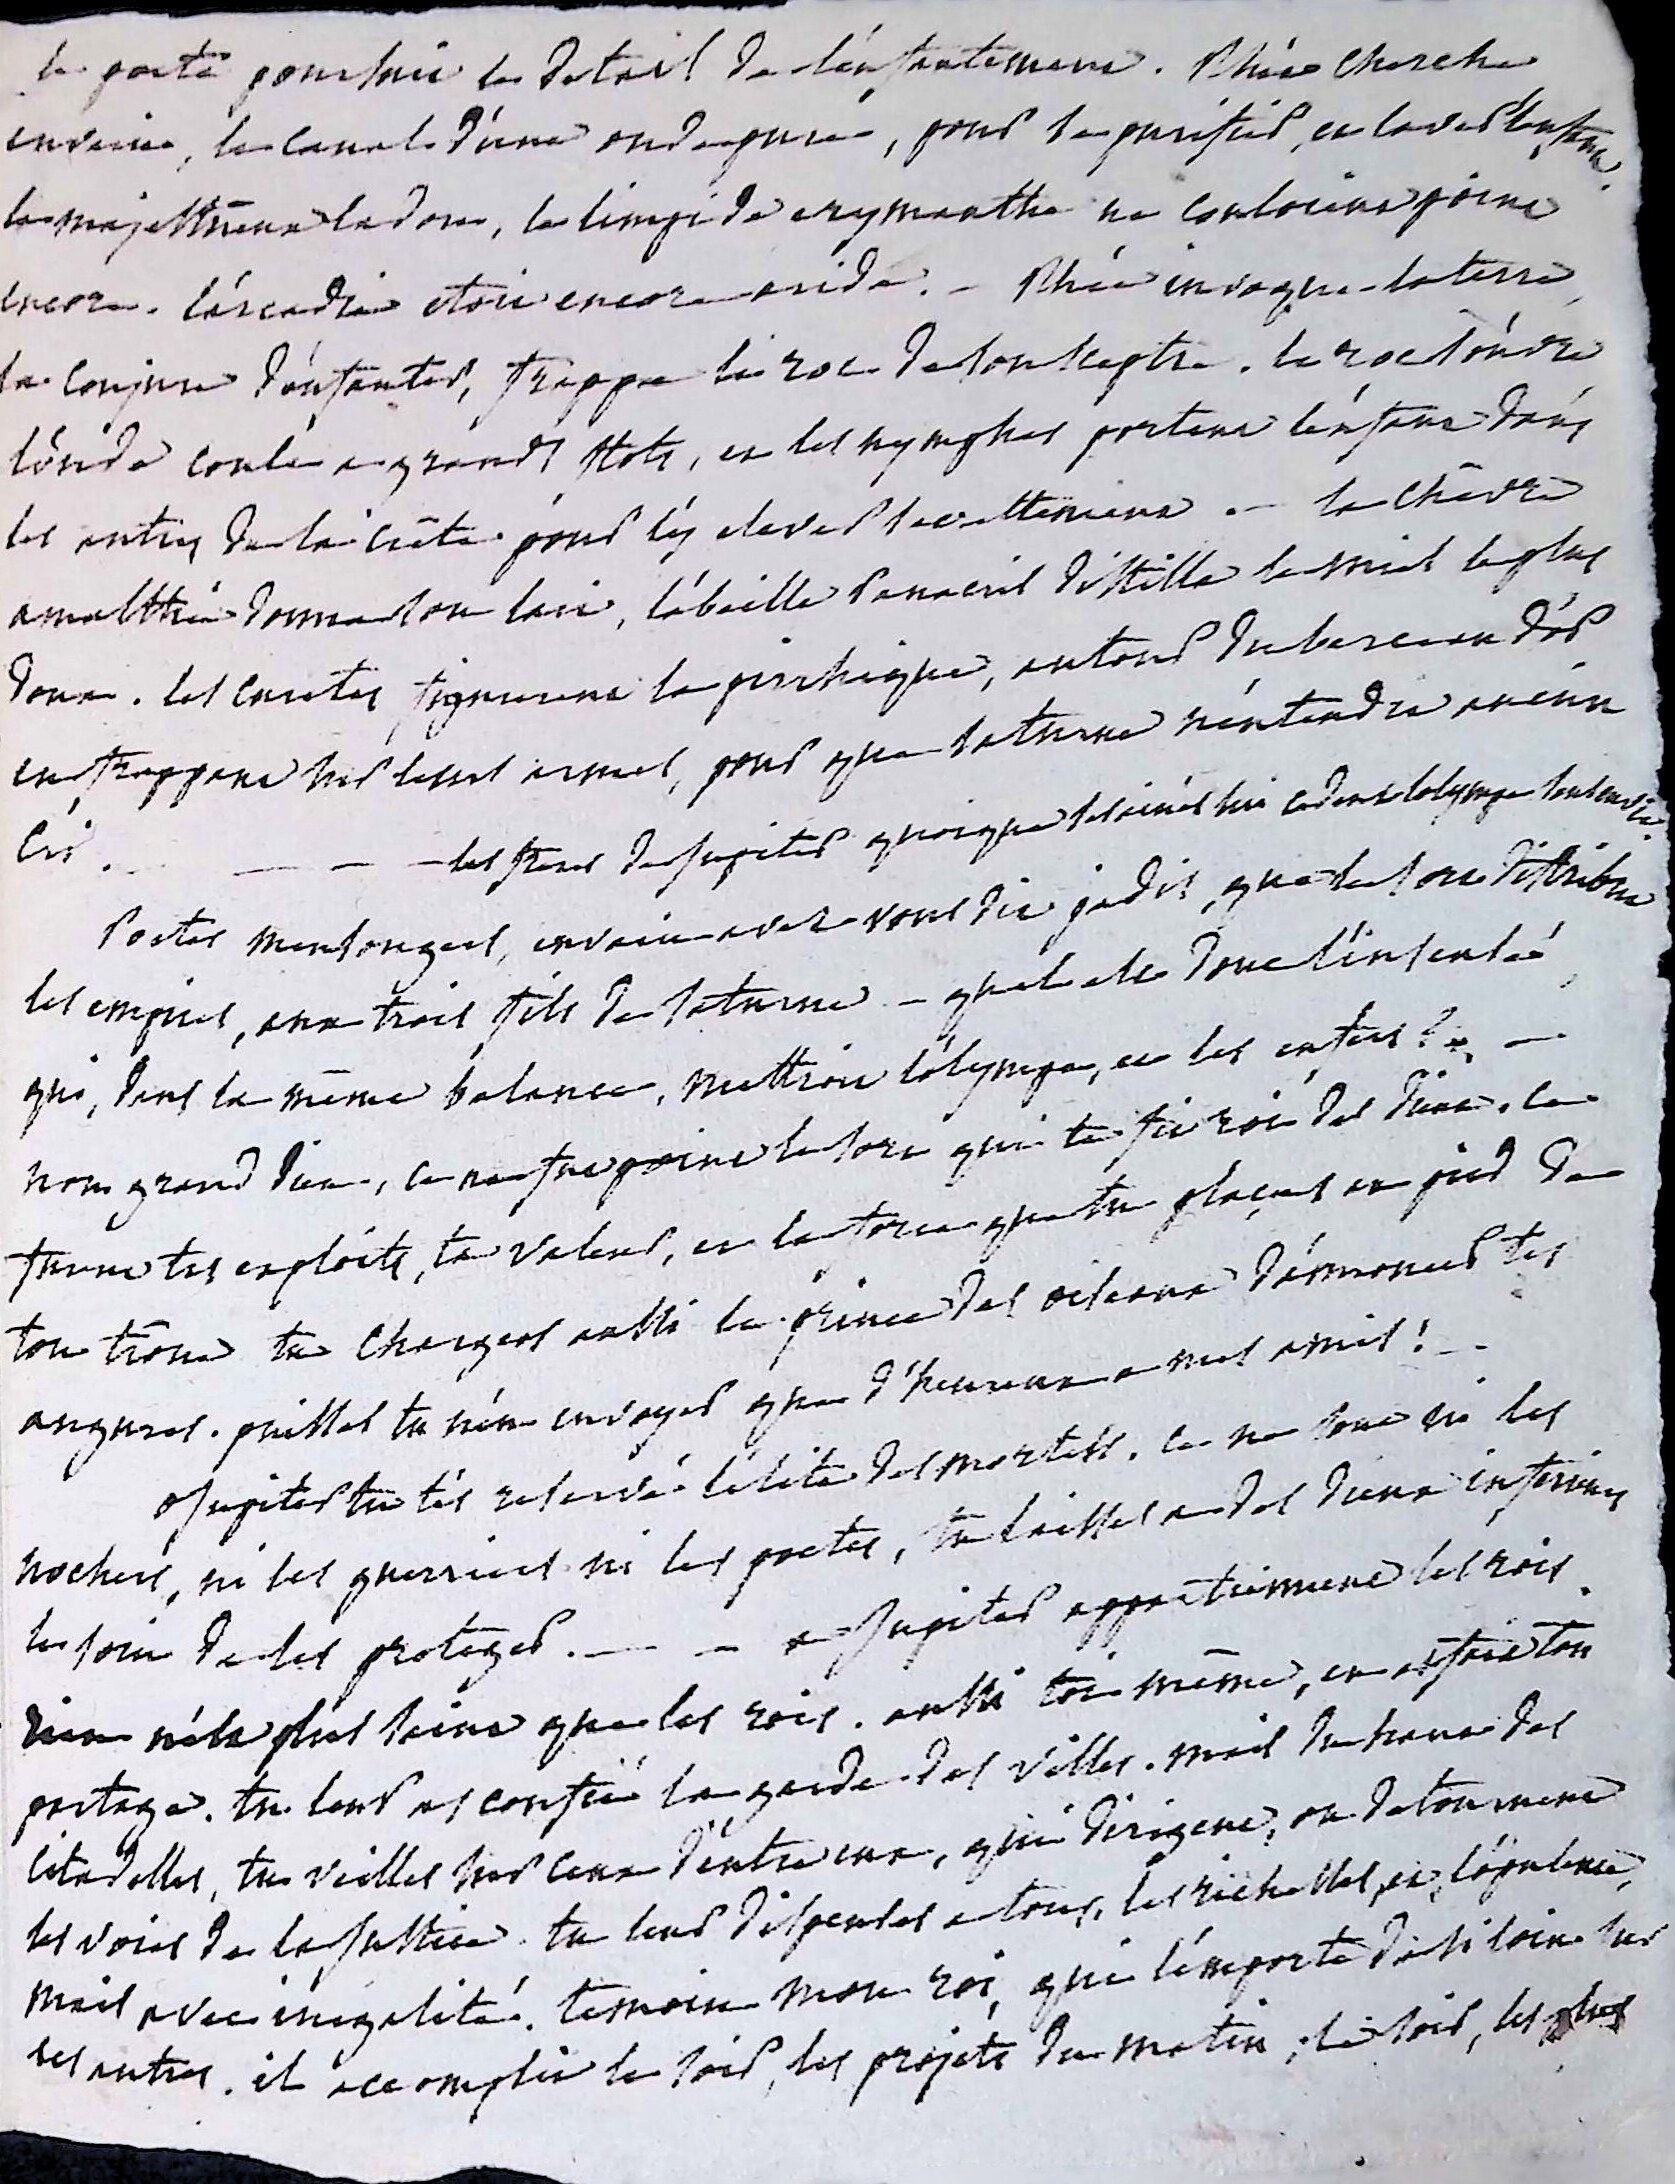 le poete poursuit le detail de l'enfantement. Rhée cherche
envain, le canal d'une onde pure, pour se purifier, et laver l'enfant.
le majestueux ladon, le limpide erymanthe ne couloient point
encore. l'arcadie etoit encore aride. - Rhée invoque la terre,
la conjure d'enfanter, frappe le roc de son sceptre. le roc s'ouvre
l'onde coule a grands flots, et les nymphes portent l'enfant dans
les antres de la crète pour l'y elever secrettement. - la chèvre
amalthée donna son lait, l'abeille panacris distilla le miel le plus
doux. les curetes figurerent la pirrhique, autour du berceau d'or
en frappant sur leurs armes, pour que saturne n'entendre aucun
cri. - - - les freres de jupiter quoique ses ainés lui cedent l'olympe sans envie.
Poetes mensongers, envain avez vous dit jadis, que le sort distribua
les empires, aux trois fils de saturne - quel est donc l'insensé
qui, dans la même balance, mettroit l'olympe, et les enfers? -
non grand dieu, ce ne fut point le sort qui te fit roi des dieux. ce
furent tes exploits, ta valeur, et la force que tu plaças au pied de
ton trône tu chargeas aussi le prince des oiseaux d'annoncer tes
augures. puisses tu n'en envoyer que d'heureux a mes amis! -
o jupiter tu t'es reservé l'elite des mortels. ce ne sont ni les
nochers, ni les guerriers ni les poetes, tu laisses a des dieux inferieurs
le soin de les proteger. - - a jupiter appartiennent les rois.
rien n'est plus saint que les rois. aussi toi même, en as fait ton
partage. tu leur as confié la garde des villes. mais du haut des
citadelles, tu veilles sur ceux d'entre eux, qui dirigent, ou detournent
les voies de la justice. tu leur dispenses a tous, les richesses, et l'opulence,
mais avec inégalité. temoin mon roi, qui l'emporte de si loin sur
les autres. il accomplit le soir, les projets du matin, le soir, les plus